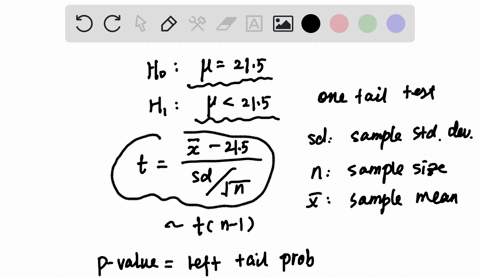 H₀: μ = 21.5
H₁: μ < 21.5
one tail test
t = (x̄ − 21.5) / (sd/√n)
sd: sample std. dev.
n: sample size
x̄: sample mean
~ t(n-1)
p-value = left tail prob